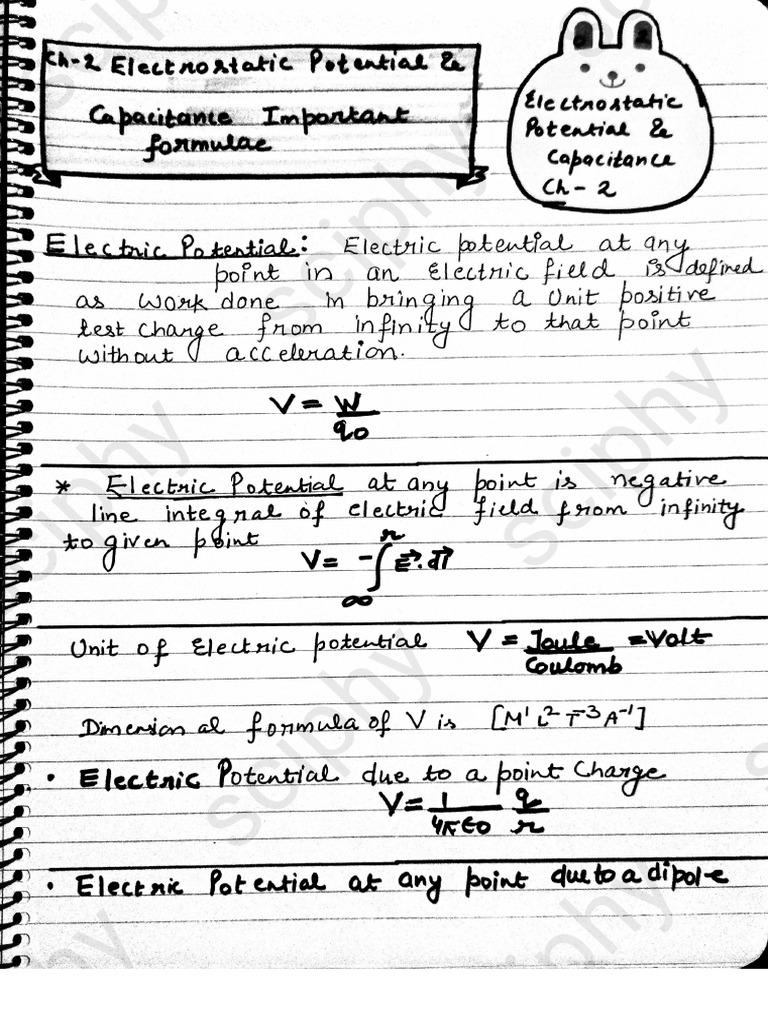 Ch-2 Electrostatic Potential &
Capacitance Important
formulae
Electrostatic
Potential &
Capacitance
Ch-2
Electric Potential: Electric potential at any
point in an electric field is defined
as work done in bringing a unit positive
test charge from infinity to that point
without acceleration.
V = W/q₀
* Electric Potential at any point is negative
line integral of electric field from infinity
to given point
V = -∫_∞^r E⃗.dl⃗
Unit of Electric potential V = Joule/Coulomb = Volt
Dimensional formula of V is [M¹L²T⁻³A⁻¹]
• Electric Potential due to a point charge
V = 1/4πε₀ q/r
• Electric Potential at any point due to a dipole
sciphy
sciphy
sciphy
sciphy
sciphy
sciphy